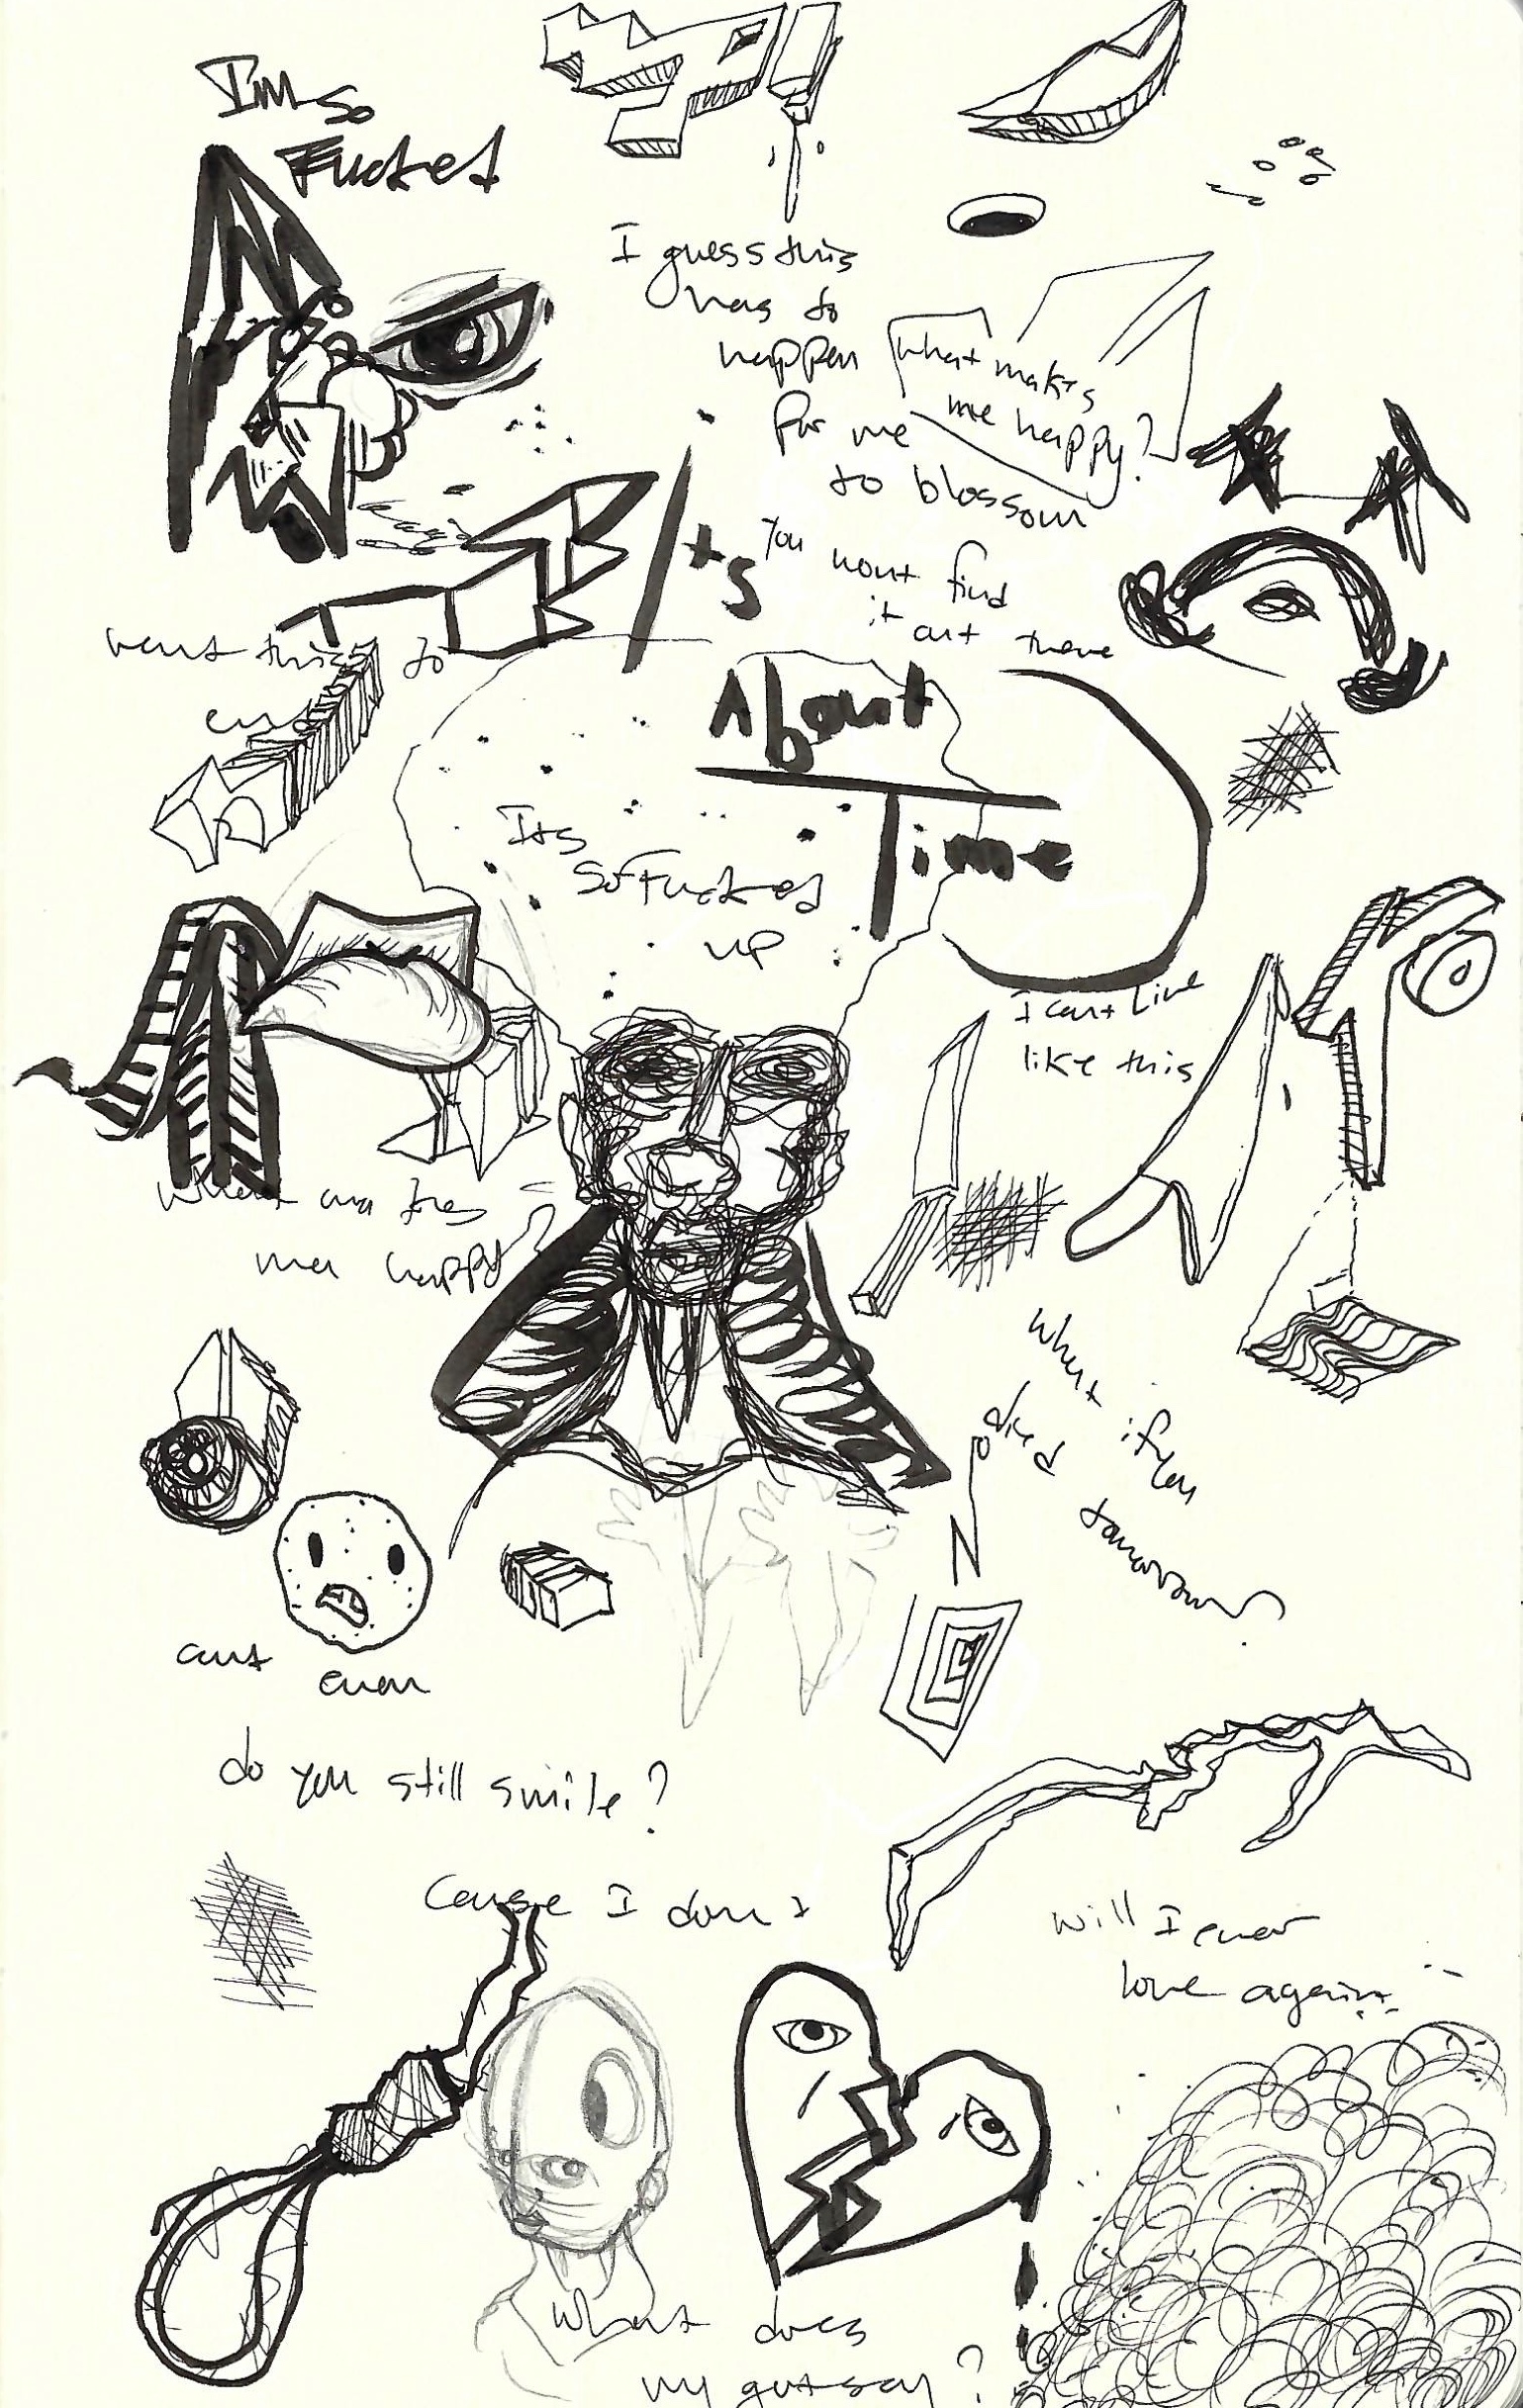 I'm so
Fucked
I guess this
has to
happen
for me
to blossom
what makes
me happy?
Its
You wont find
it out there
want this to
end
About
Time
Its
so Fucked
up
I cant Live
like this
What makes
me happy?
What if you
died
tomorrow?
N
cant
even
do you still smile?
Cause I dont
Will I ever
love again
What does
my gut say?